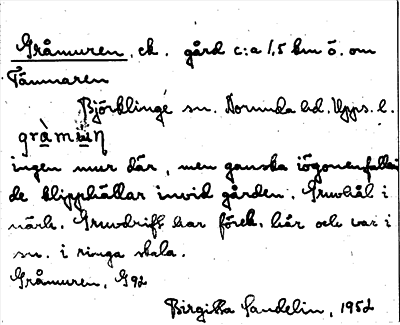 Gråmuren, ek. gård c:a 1,5 km ö. om
Tämnaren
Björklinge sn. Norunda hd. Upps. l.
gràmu̇ŋ
ingen mur där, men ganska iögonenfallan
de klipphällar invid gården. Gruvhål i
närh. Gruvdrift har förek. här och var i
sn. i ringa skala.
Gråmuren, G92
Birgitta Sandelin, 1952